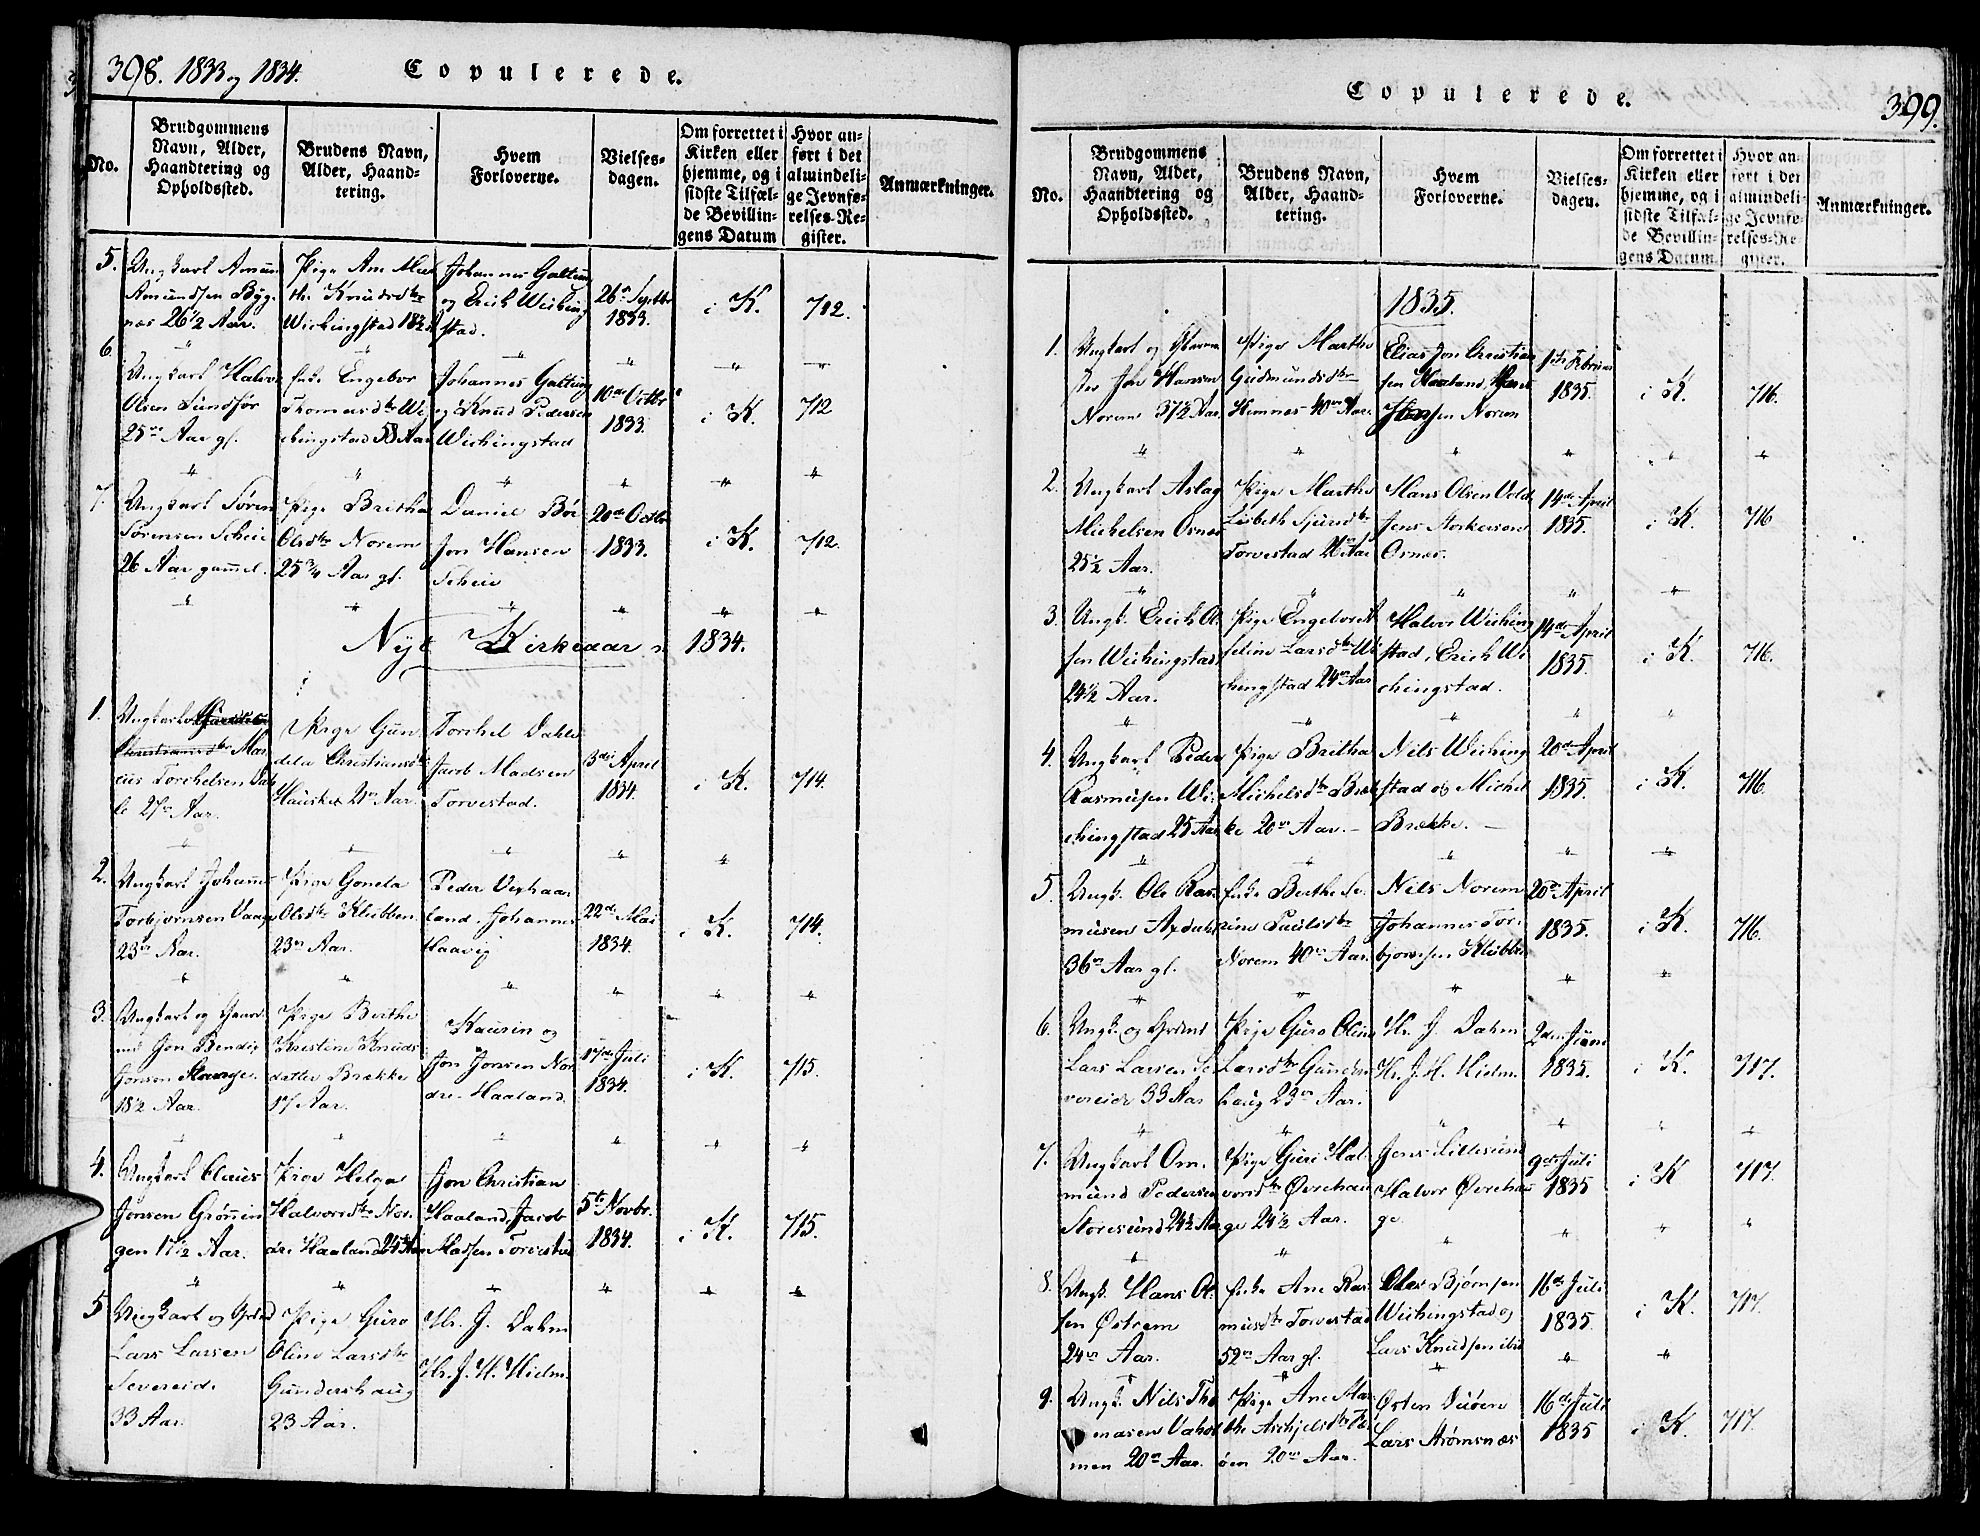 398. 1833 og 1834.
Copulerede.
No.
Brudgommens Navn, Alder, Haandtering og Opholdssted.
Brudens Navn, Alder, Haandtering.
Hvem Forloverne.
Vielsesdagen.
Om forrettet i Kirken eller hjemme, og i sidste Tilfælde Bevillingens Datum
Hvor anført i det almindelige Jevnførelses-Register.
Anmærkninger.
5.
Ungkarl Amun
Amundsen Byg
nes 26 1/2 Aar.
Pige Ane Mar
the Knudsdtr
Wichingstad 18 1/2
Johannes Galtung
og Erich Wiching
stad.
26de Septbr
1833.
i K.
712.
6.
Ungkarl Halvor
Olsen Sundfør
25 Aar gl.
Enke Engebor
Thomasdtr Wi
chingstad 53 Aar
Johannes Galtung
og Knud Pedersen
Wichingstad
10de Octbr
1833.
i K.
712
7.
Ungkarl Sören
Sörensen Scheie
26 Aar gammel.
Pige Britha
Olsdtr Norem
25 3/4 Aar gl.
Daniel Bö
Jon Hansen
Scheie
20de Octbr
1833.
i K.
712.
Nyt Kirkeaar 1834.
1.
Ungkarl
Christiansdtr Mar
cus Torchelsen Dah
le 27 Aar.
Pige Gun
dela Christiansdtr
Hauske 21 Aar.
Torchel Dahle
Jacob Madsen
Torvestad.
3die April
1834.
i K.
714.
2.
Ungkarl Johannes
Torbjörnsen Vaage
23 Aar.
Pige Gonela
Olsdtr Klubben
23 Aar.
Peder Vexhaa
land. Johannes
Haavig
22de Mai
1834.
i K.
714.
3.
Ungkarl og Gaard
md Jon Bendix
Jonsen Stange.
18 1/2 Aar.
Pige Berthe
Kristine Knuds
datter Brække
17 Aar.
Kaurin og
Jon Jonsen Nor
dre Haaland.
17de Juli
1834.
i K.
715.
4.
Ungkarl Claus
Jonsen Grönnin
gen 17 1/2 Aar.
Pige Helga
Halvorsdtr Nor.
dre Haaland 25 Aar
Jon Christian
Haaland, Jacob
Madsen Torvestad
5te Novbr.
1834.
i K.
715.
5
Ungkarl og
Lars Larsen
Severeid.
33 Aar.
Pige Guro
Oline Larsdtr
Gundershaug
23 Aar.
Hr. J. Dahm
Hr. J. H. Hielm.
Copulerede.
399.
No.
Brudgommens Navn, Alder, Haandtering og Opholdssted.
Brudens Navn, Alder, Haandtering.
Hvem Forloverne.
Vielsesdagen.
Om forrettet i Kirken eller hjemme, og i sidste Tilfælde Bevillingens Datum.
Hvor anført i det almindelige Jevnførelses-Register.
Anmærkninger.
1835.
1.
Ungkarl og
Jon Hansen
Norem 37 1/2 Aar.
Pige Marthe
Gudmundsdtr
Hemnes 40 Aar.
Elias Jon Christian
sen Haaland,
Norem
1ste Februar
1835.
i K.
716.
2.
Ungkarl Aslag
Michelsen Osnes
25 1/2 Aar.
Pige Marthe
Lisbeth Sjursdtr
Torvestad 26 Aar
Hans Olsen Vold
Jens
Osnes.
14de April
1835.
i K.
716
3.
Ungk. Erich Ol
sen Wichingstad
24 1/2 Aar.
Pige Engelvret
seline Larsdtr Wi
chingstad 24 Aar
Halvor Wiching
stad, Erich Wi
chingstad.
14de April
1835.
i K.
716.
4.
Ungkarl Peder
Rasmusen Wi
chingstad 25 Aar
Pige Britha
Michelsdtr Bræk
ke 20 Aar.
Nils Wiching
stad og Michel
Brække.
20de April
1835.
i K.
716.
5.
Ungk. Ole Ras
musen Axdahl
36 Aar gl.
Enke Berthe Se
rine Paulsdtr
Norem 40 Aar.
Nils Norem
Johannes Tor
bjornsen Klubben
20de April
1835.
i K.
716.
6.
Ungk. og
Lars Larsen Se
vereide 33 Aar
Pige Guro Oline
Larsdtr Gunders
haug 23 Aar.
Hr. J. Dahm
Hr. J. H. Hielm.
2den Juni
1835.
i K.
717.
7.
Ungkarl Om
mund Pedersen
Storesund 24 1/2 Aar
Pige Guri Hal
vorsdtr Øvrehau
ge 24 1/2 Aar.
Jens Lillesund
Halvor Øvrehau
ge.
9de Juli
1835
i K
717.
8.
Ungk. Hans Ol
sen Østrem
24 Aar.
Enke Ane Ras
musdtr Torvestad
52 Aar gl.
Olav Bjørnsen
Wichingstad og
Lars Knudsen ibid
16de Juli
1835.
i K.
717.
9.
Ungk. Nils Tho
masen Vahol
men 20 Aar.
Pige Ane Mar
the Aschjelsdtr
øen 20 Aar.
Østen Duöen
Lars Strømsnæs
16de Juli
1835
i K.
717.